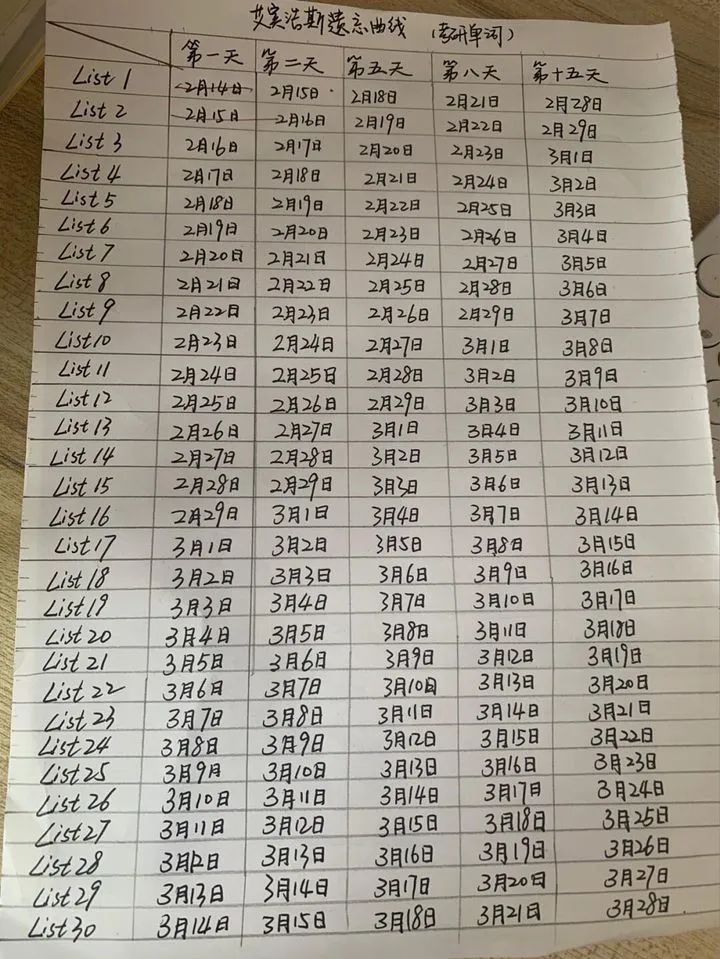 艾宾浩斯遗忘曲线 (考研单词)
第一天 第二天 第五天 第八天 第十五天
List 1 2月14日 2月15日 2月18日 2月21日 2月28日
List 2 2月15日 2月16日 2月19日 2月22日 2月29日
List 3 2月16日 2月17日 2月20日 2月23日 3月1日
List 4 2月17日 2月18日 2月21日 2月24日 3月2日
List 5 2月18日 2月19日 2月22日 2月25日 3月3日
List 6 2月19日 2月20日 2月23日 2月26日 3月4日
List 7 2月20日 2月21日 2月24日 2月27日 3月5日
List 8 2月21日 2月22日 2月25日 2月28日 3月6日
List 9 2月22日 2月23日 2月26日 2月29日 3月7日
List 10 2月23日 2月24日 2月27日 3月1日 3月8日
List 11 2月24日 2月25日 2月28日 3月2日 3月9日
List 12 2月25日 2月26日 2月29日 3月3日 3月10日
List 13 2月26日 2月27日 3月1日 3月4日 3月11日
List 14 2月27日 2月28日 3月2日 3月5日 3月12日
List 15 2月28日 2月29日 3月3日 3月6日 3月13日
List 16 2月29日 3月1日 3月4日 3月7日 3月14日
List 17 3月1日 3月2日 3月5日 3月8日 3月15日
List 18 3月2日 3月3日 3月6日 3月9日 3月16日
List 19 3月3日 3月4日 3月7日 3月10日 3月17日
List 20 3月4日 3月5日 3月8日 3月11日 3月18日
List 21 3月5日 3月6日 3月9日 3月12日 3月19日
List 22 3月6日 3月7日 3月10日 3月13日 3月20日
List 23 3月7日 3月8日 3月11日 3月14日 3月21日
List 24 3月8日 3月9日 3月12日 3月15日 3月22日
List 25 3月9日 3月10日 3月13日 3月16日 3月23日
List 26 3月10日 3月11日 3月14日 3月17日 3月24日
List 27 3月11日 3月12日 3月15日 3月18日 3月25日
List 28 3月12日 3月13日 3月16日 3月19日 3月26日
List 29 3月13日 3月14日 3月17日 3月20日 3月27日
List 30 3月14日 3月15日 3月18日 3月21日 3月28日